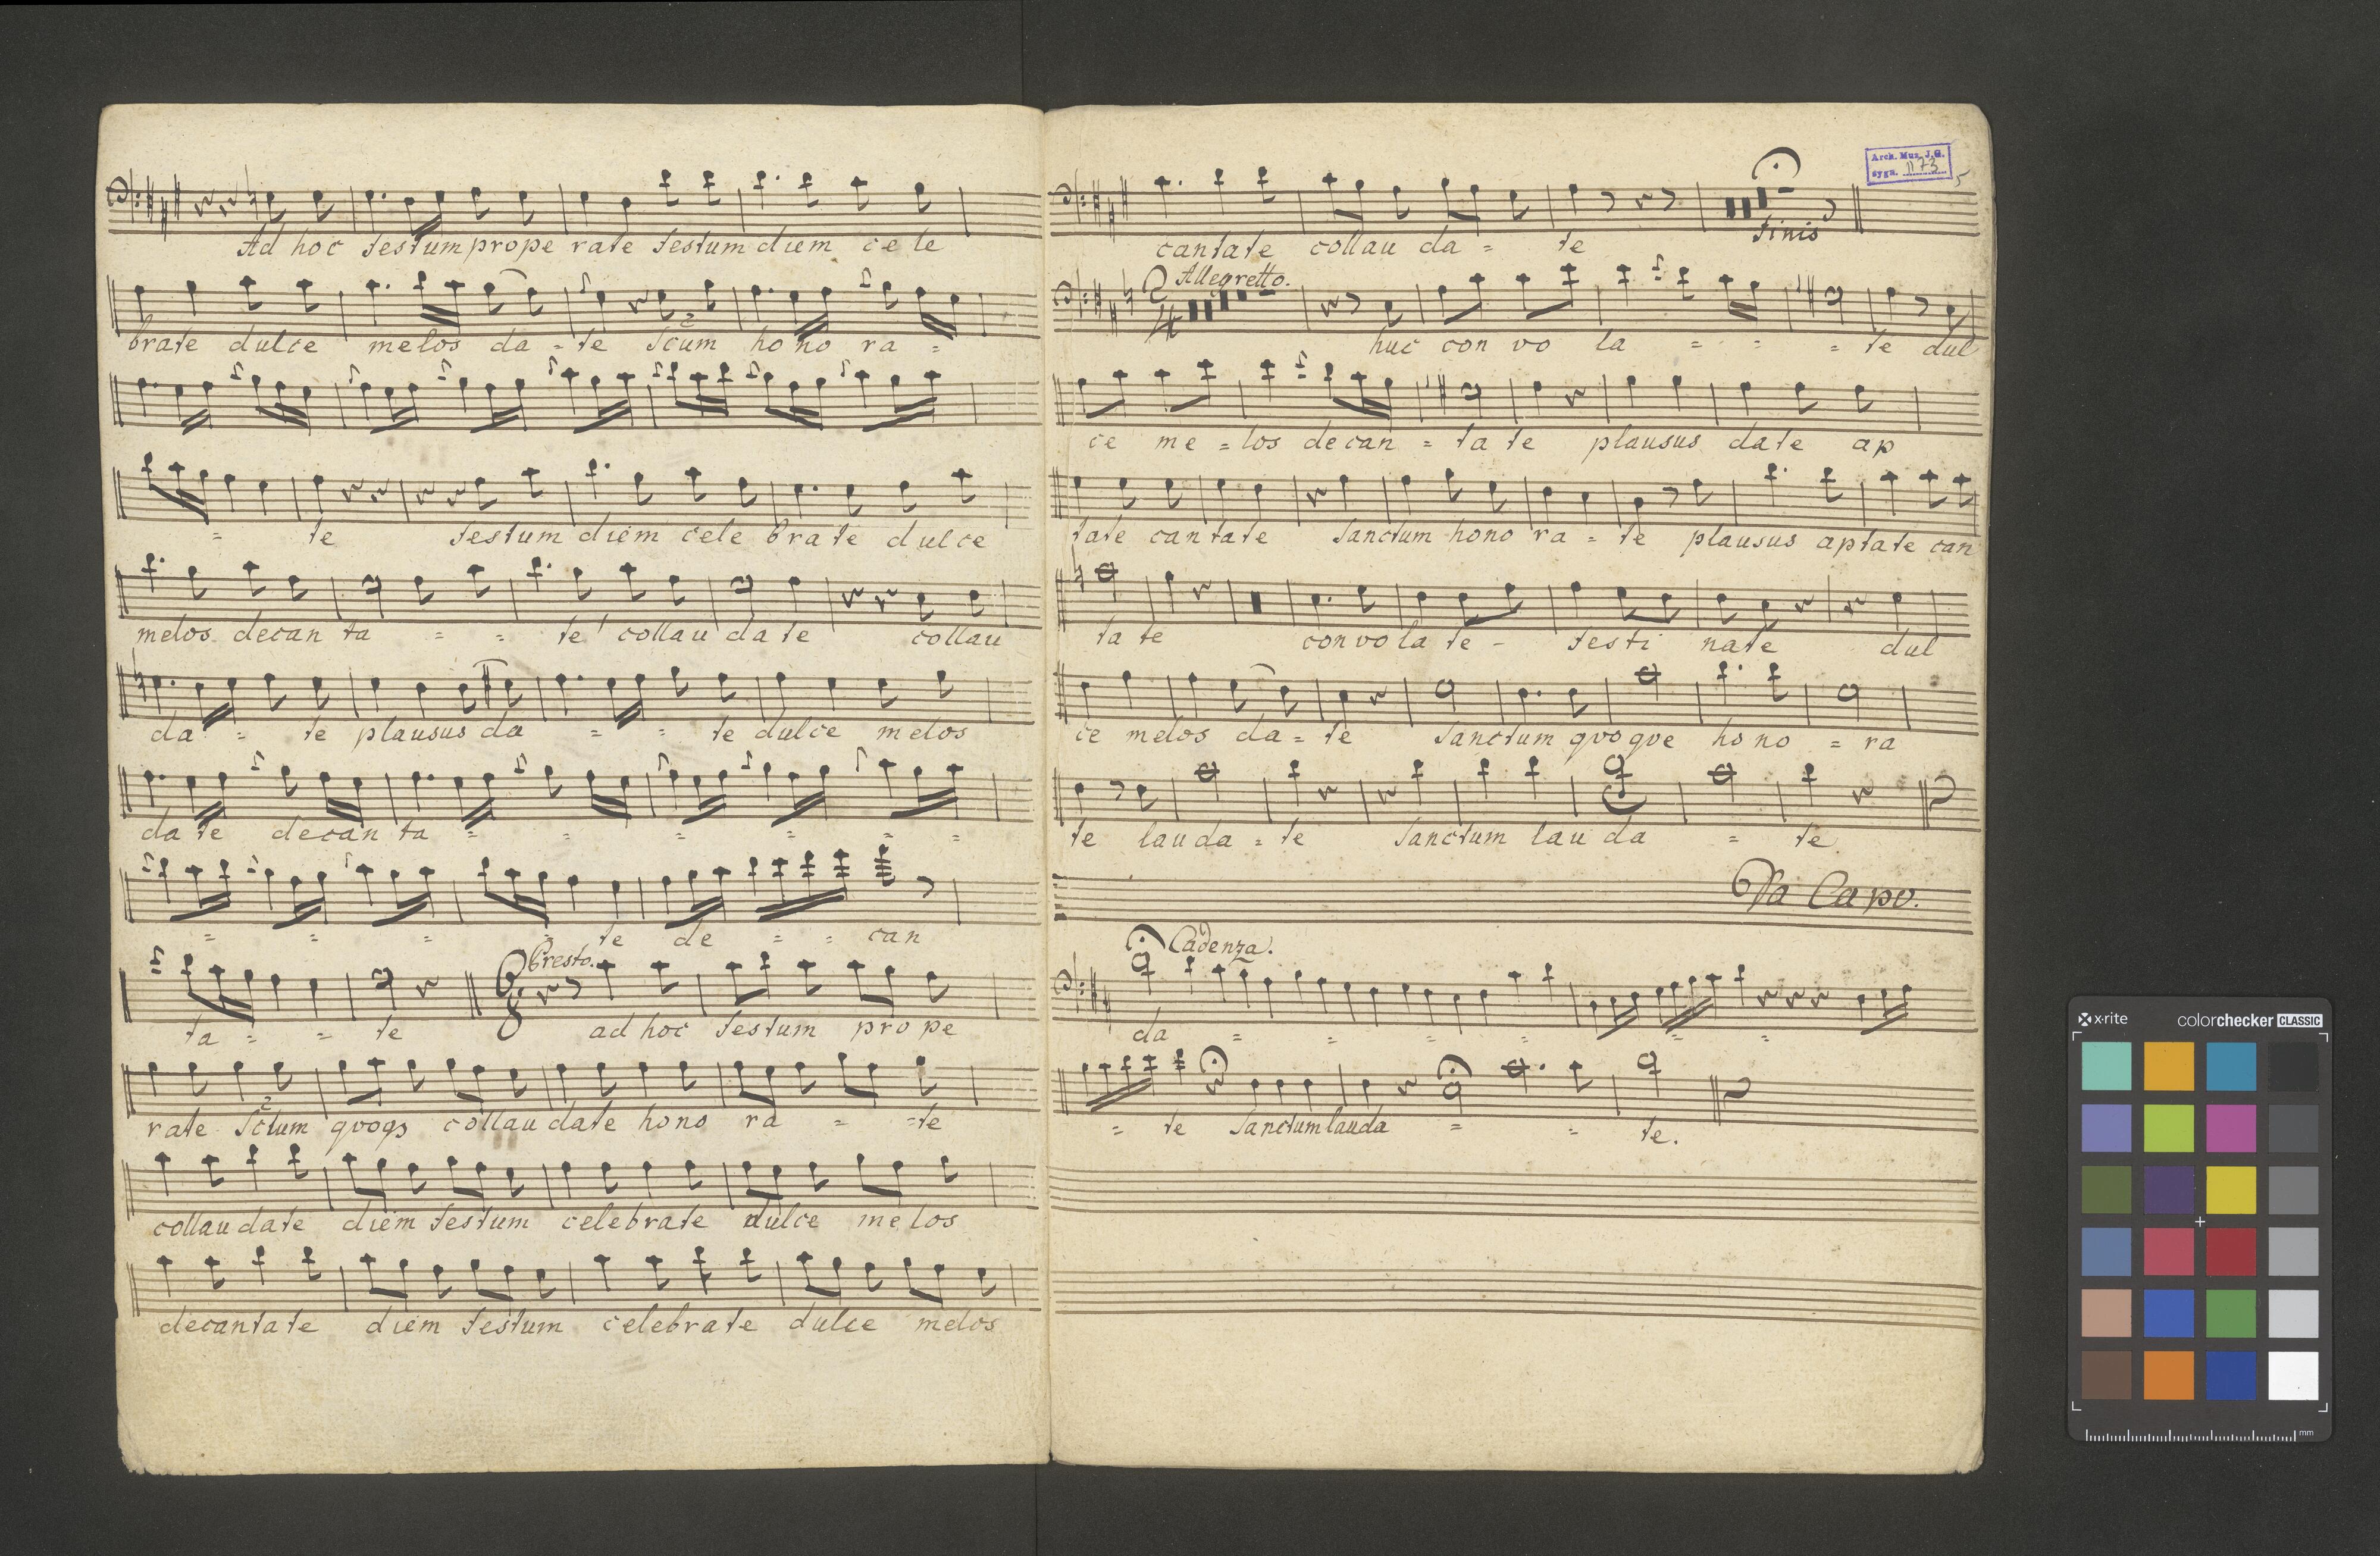 Ad hoc festum prope rate festum diem cele
brate dulce melos da = te Scum hono ra =
= te festum diem cele brate dulce
melos decan ta = = te collau date collau
da = te plausus da = = te dulce melos
date decan ta = = = = = =
= = = = te de = = can
Presto.
ta = = te ad hoc festum prope
rate Sctum quoqs collaudate hono ra = =te
collaudate diem festum celebrate dulce melos
decantate diem festum celebrate dulce melos
Arch. Muz. J.G.
sygn. 1173
5
cantate collau da = te finis
Allegretto.
2/4
huc con vo la = = = te dul
ce me = los decan = ta te plausus date ap
tate cantate Sanctum hono ra = te plausus aptate can
ta te convola te - festi nate dul
ce melos da = te Sanctum quoque hono = ra
te lauda = te Sanctum lau da = te
Da Capo.
Cadenza.
da = = = = = =
= te Sanctum lauda = = te.
x-rite
colorchecker CLASSIC
mm